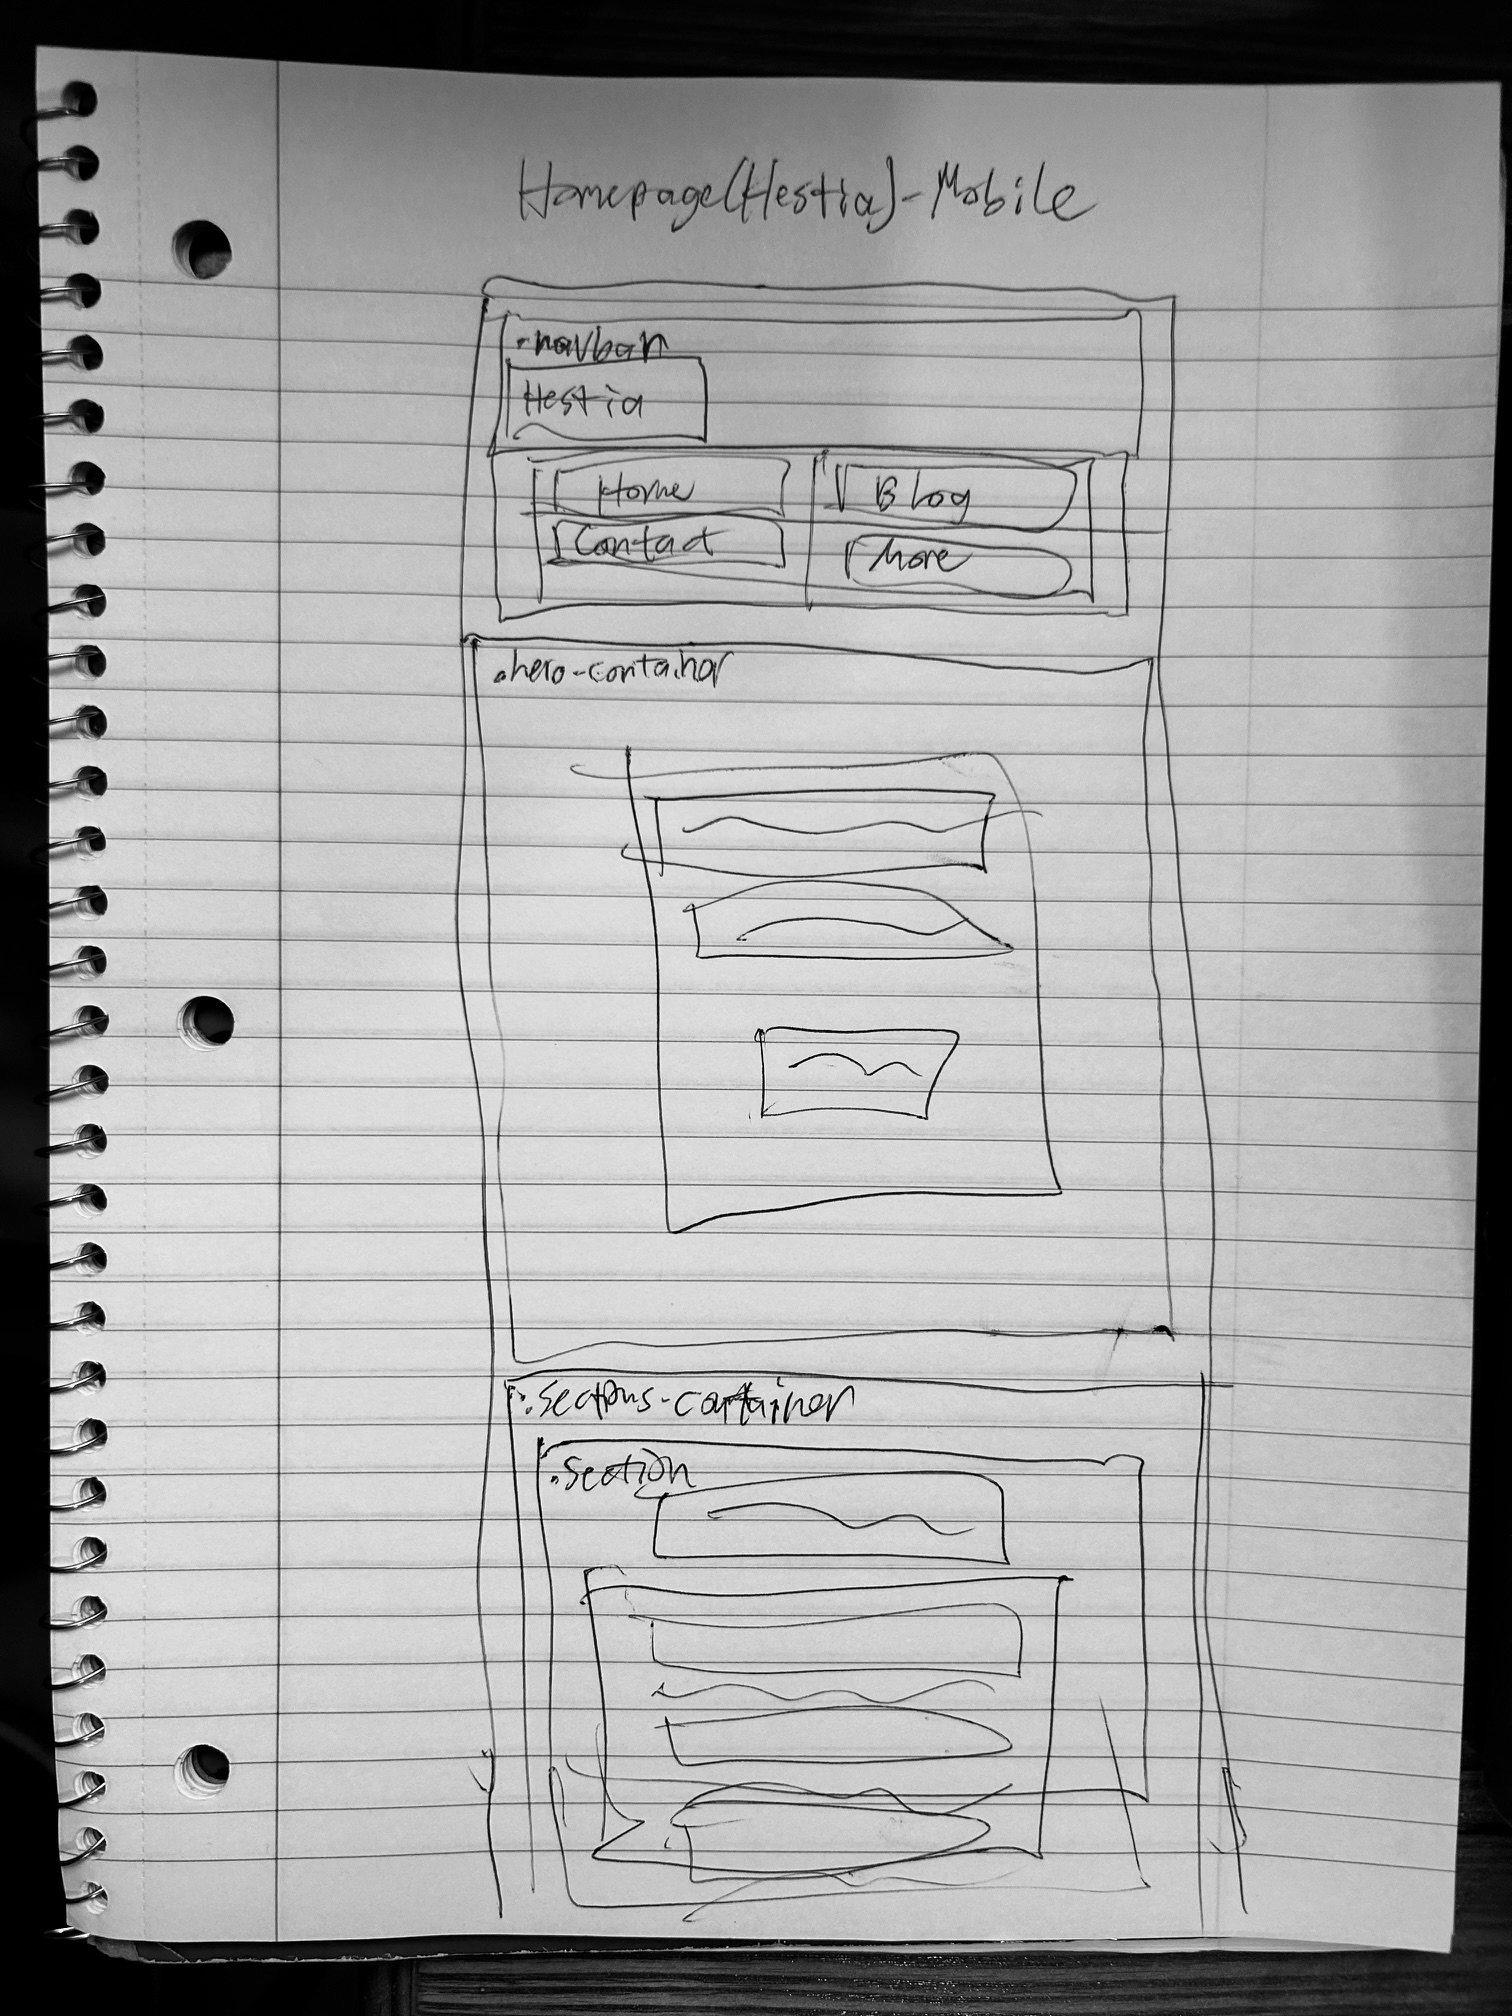 Homepage(Hestia)-Mobile
.navbar
Hestia
Home Blog
Contact More
.hero-container
.sections-container
.section